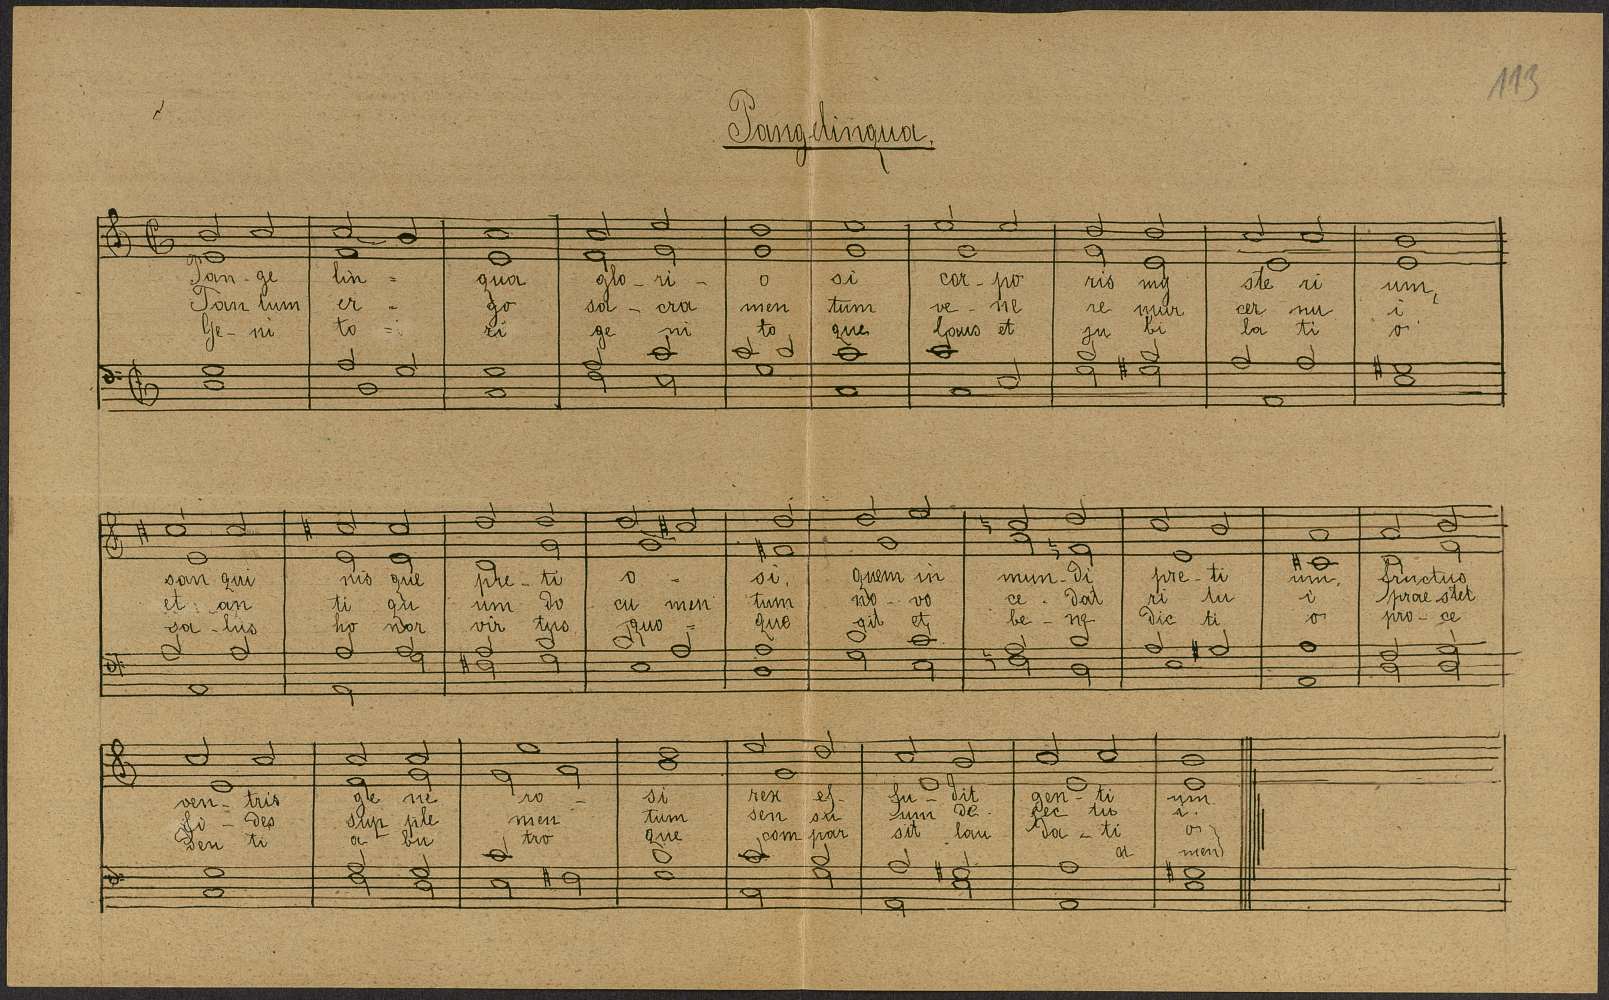 113
Pange lingua.
Pan-ge lin - qua glo-ri- o si cor-po ris my ste ri um,
Tan tum er - go sa-cra men tum ve-ne re mur cer nu i
Ge-ni to - ri ge ni to que laus et ju bi la ti o
san qui nis que pre-ti o - si, quem in mun-di pre-ti um, fructus
et an ti qu um do cu men tum no-vo ce-dat ri tu i prae stet
sa-lus ho nor vir tus quo - que sit et be-ne dic ti o pro-ce
ven-tris ge ne ro - si rex ef- fu-dit gen-ti um
fi-des sup ple men tum sen su um de- fec tu i.
den ti a bu tro que com par sit lau da-ti o
a men